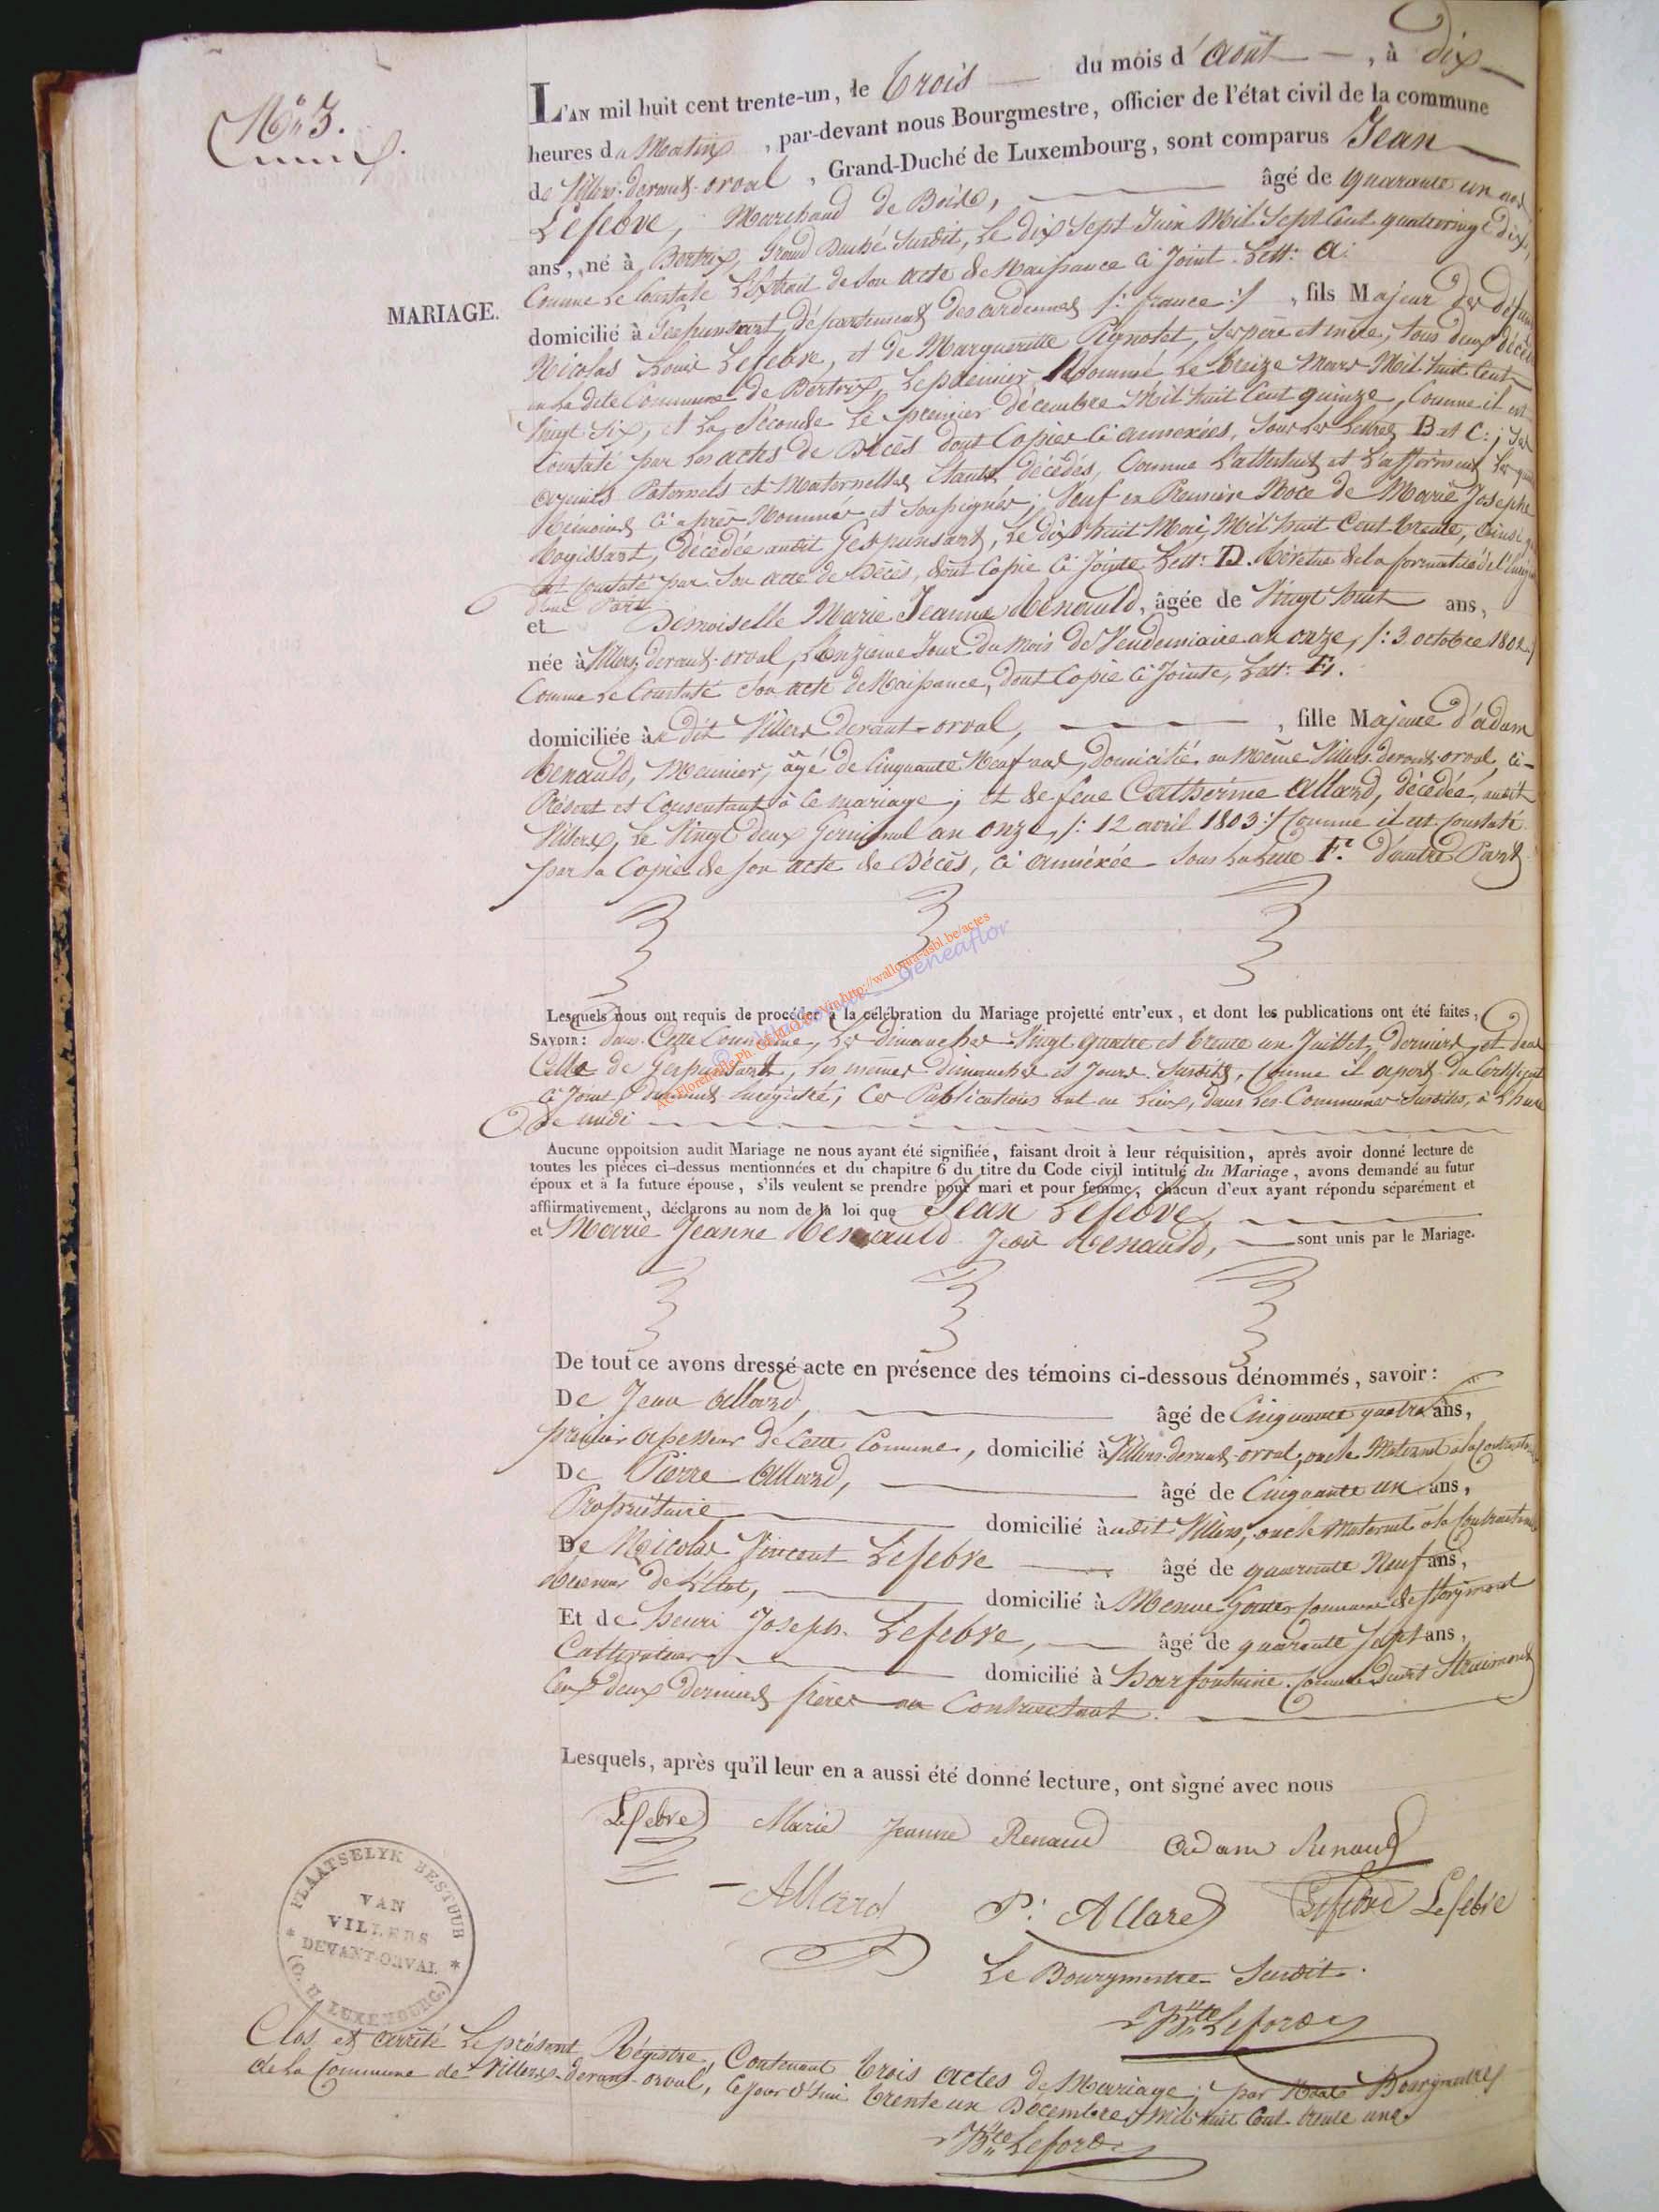 N° 3.
MARIAGE.
L'AN mil huit cent trente-un, le trois du mois d'août, à dix
heures du Matin, par-devant nous Bourgmestre, officier de l'état civil de la commune
de Villers-devant-orval, Grand-Duché de Luxembourg, sont comparus Jean
Lefebve, Marchand de Bois, âgé de quarante un ans
ans, né à Bertrix, Grand Duché Susdit, Le dix Sept Juin Mil Sept Cent quatrevingt dix,
Comme Le Constate L'Extrait de Son acte de Naissance ci Joint Lett: A.
domicilié à Gespunsart, département des ardennes /: france :/, fils Majeur des défunts
Nicolas Louis Lefebve, et de Marguerite Pignolet, Ses père et mère, tous deux décédés
en La dite Commune de Bertrix, Le premier Nommé Le treize Mars Mil huit Cent
Vingt Six, et La Seconde Le premier décembre Mil huit Cent quinze, Comme il est
Constaté par Les actes de Décès dont Copies ci annexées, Sous Les Lettres B et C; Ses
ayeuls Paternels et Maternelles étant décédés, Comme L'attestent et L'afferment Les quatre
témoins ci après Nommés et Soussignés; Veuf en Première Noce de Marie Josephe
décédée audit Gespunsart, Le dix huit Mai Mil huit Cent trente, ainsi qu'il
est Constaté par Son acte de Décès, dont Copie ci Jointe Lett: D. de la formalité de
d'une Part
et Demoiselle Marie Jeanne Renauld, âgée de Vingt huit ans,
née à Villers-devant-orval, L'onzieme Jour du Mois de Vendemiaire an onze, /: 3 octobre 1802 :/
Comme Le Constate Son acte de Naissance, dont Copie ci Jointe, Lett: E.
domiciliée à dit Villers devant-orval, fille Majeure d'adam
Renauld, Meunier, âgé de Cinquante Neuf ans, Domicilié au Même Villers-devant-orval, ci-
Présent et Consentant à ce mariage; et de feue Catherine Allard, décédée, audit
Villers, Le Vingt deux Germinal an onze, /: 12 avril 1803 :/ Comme il est Constaté
par la Copie de Son acte de Décès, ci annéxée Sous La Lettre F. d'autre Part
Lesquels nous ont requis de procéder à la célébration du Mariage projetté entr'eux, et dont les publications ont été faites,
SAVOIR: dans Cette Commune, Les dimanches Vingt quatre et trente un Juillet, dernier, et dans
Celle de Gespunsart, Les mêmes dimanches et Jours Susdits, Comme il apert du Certificat
ci Joint, dument enrégistré, Ces Publications ont eu Lieux, dans Les Communes Susdites, à L'heure
de midi
Aucune oppoitsion audit Mariage ne nous ayant été signifiée, faisant droit à leur réquisition, après avoir donné lecture de
toutes les pièces ci-dessus mentionnées et du chapitre 6 du titre du Code civil intitulé du Mariage, avons demandé au futur
époux et à la future épouse, s'ils veulent se prendre pour mari et pour femme, chacun d'eux ayant répondu séparément et
affiirmativement, déclarons au nom de la loi que Jean Lefebve
et Marie Jeanne Renauld, sont unis par le Mariage.
De tout ce avons dressé acte en présence des témoins ci-dessous dénommés, savoir:
De Jean Allard, âgé de Cinquante quatre ans,
premier assesseur de Cette Comune, domicilié à Villers-devant-orval, oncle Maternel à la Contractante
De Pierre Allard, âgé de Cinquante un ans,
Propriétaire domicilié audit Villers, oncle Maternel à la Contractante
De Nicolas Vincent Lefebve âgé de quarante Neuf ans,
Receveur de L'état, domicilié à Menu Commune de
Et de henri Joseph Lefebve, âgé de quarante Sept ans,
Cultivateur domicilié à harfontaine Commune dudit Straimont
Ces deux derniers frères au Contractant.
Lesquels, après qu'il leur en a aussi été donné lecture, ont signé avec nous
Lefebve Marie Jeanne Renaud Adam Renaud
Allard P: Allard Lefebve Lefebve
Le Bourgmestre Susdit.
PLAATSELYK BESTUUR
VAN
VILLERS
DEVANT-ORVAL
(G. H. LUXEMBURG.)
Clos et arrêté Le présent Régistre, Contenant trois actes de Mariage, par Nous Bourgmestre
de La Commune de Villers-devant-orval, Ce jour d'hui trente un Décembre mil huit Cent trente une.